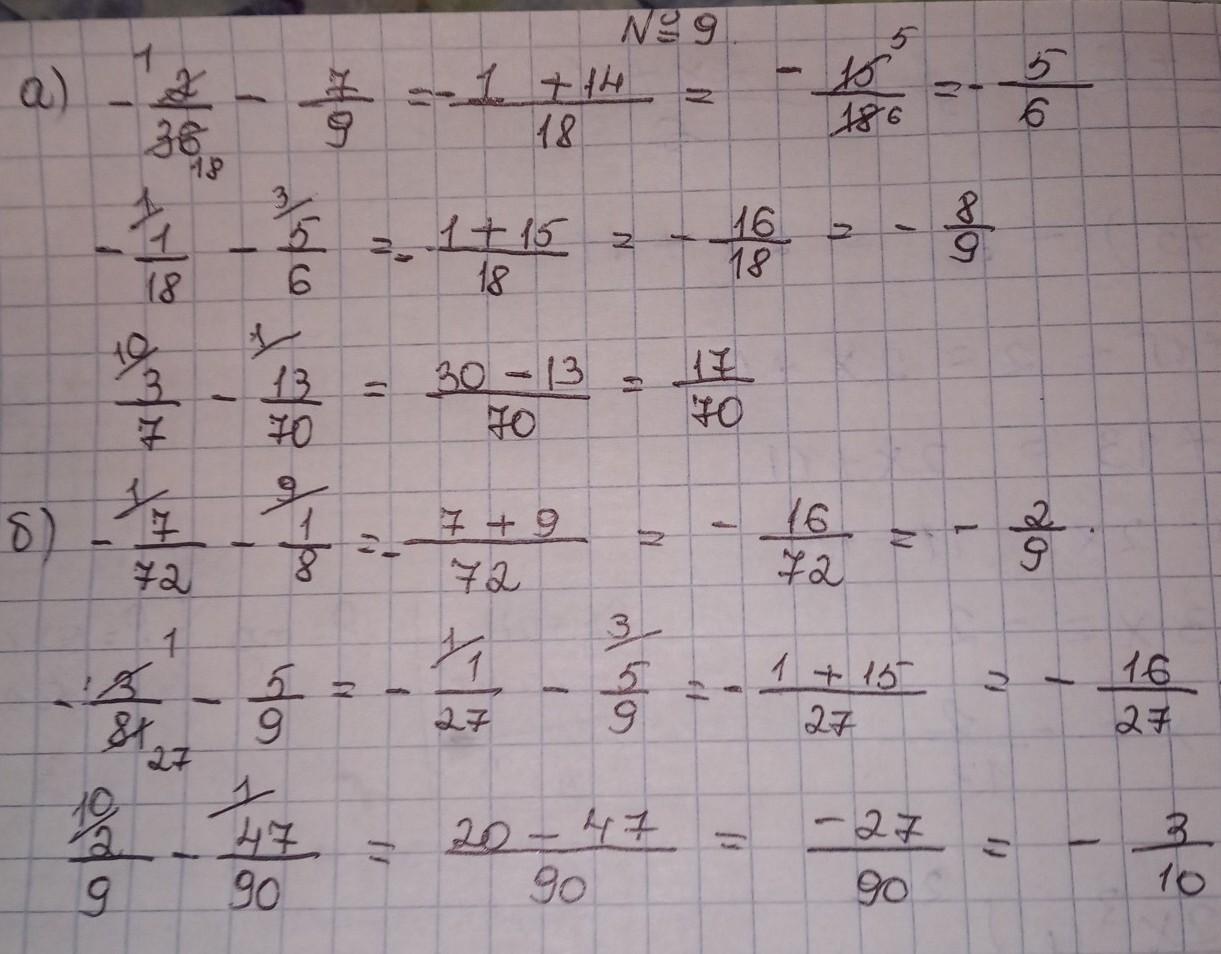 № 9
а) - 2/36 - 7/9 = - (1 + 14)/18 = - 15/18 = - 5/6
- 1/18 - 5/6 = - (1 + 15)/18 = - 16/18 = - 8/9
3/7 - 13/70 = (30 - 13)/70 = 17/70
б) - 7/72 - 1/8 = - (7 + 9)/72 = - 16/72 = - 2/9
- 3/81 - 5/9 = - 1/27 - 5/9 = - (1 + 15)/27 = - 16/27
2/9 - 47/90 = (20 - 47)/90 = -27/90 = - 3/10